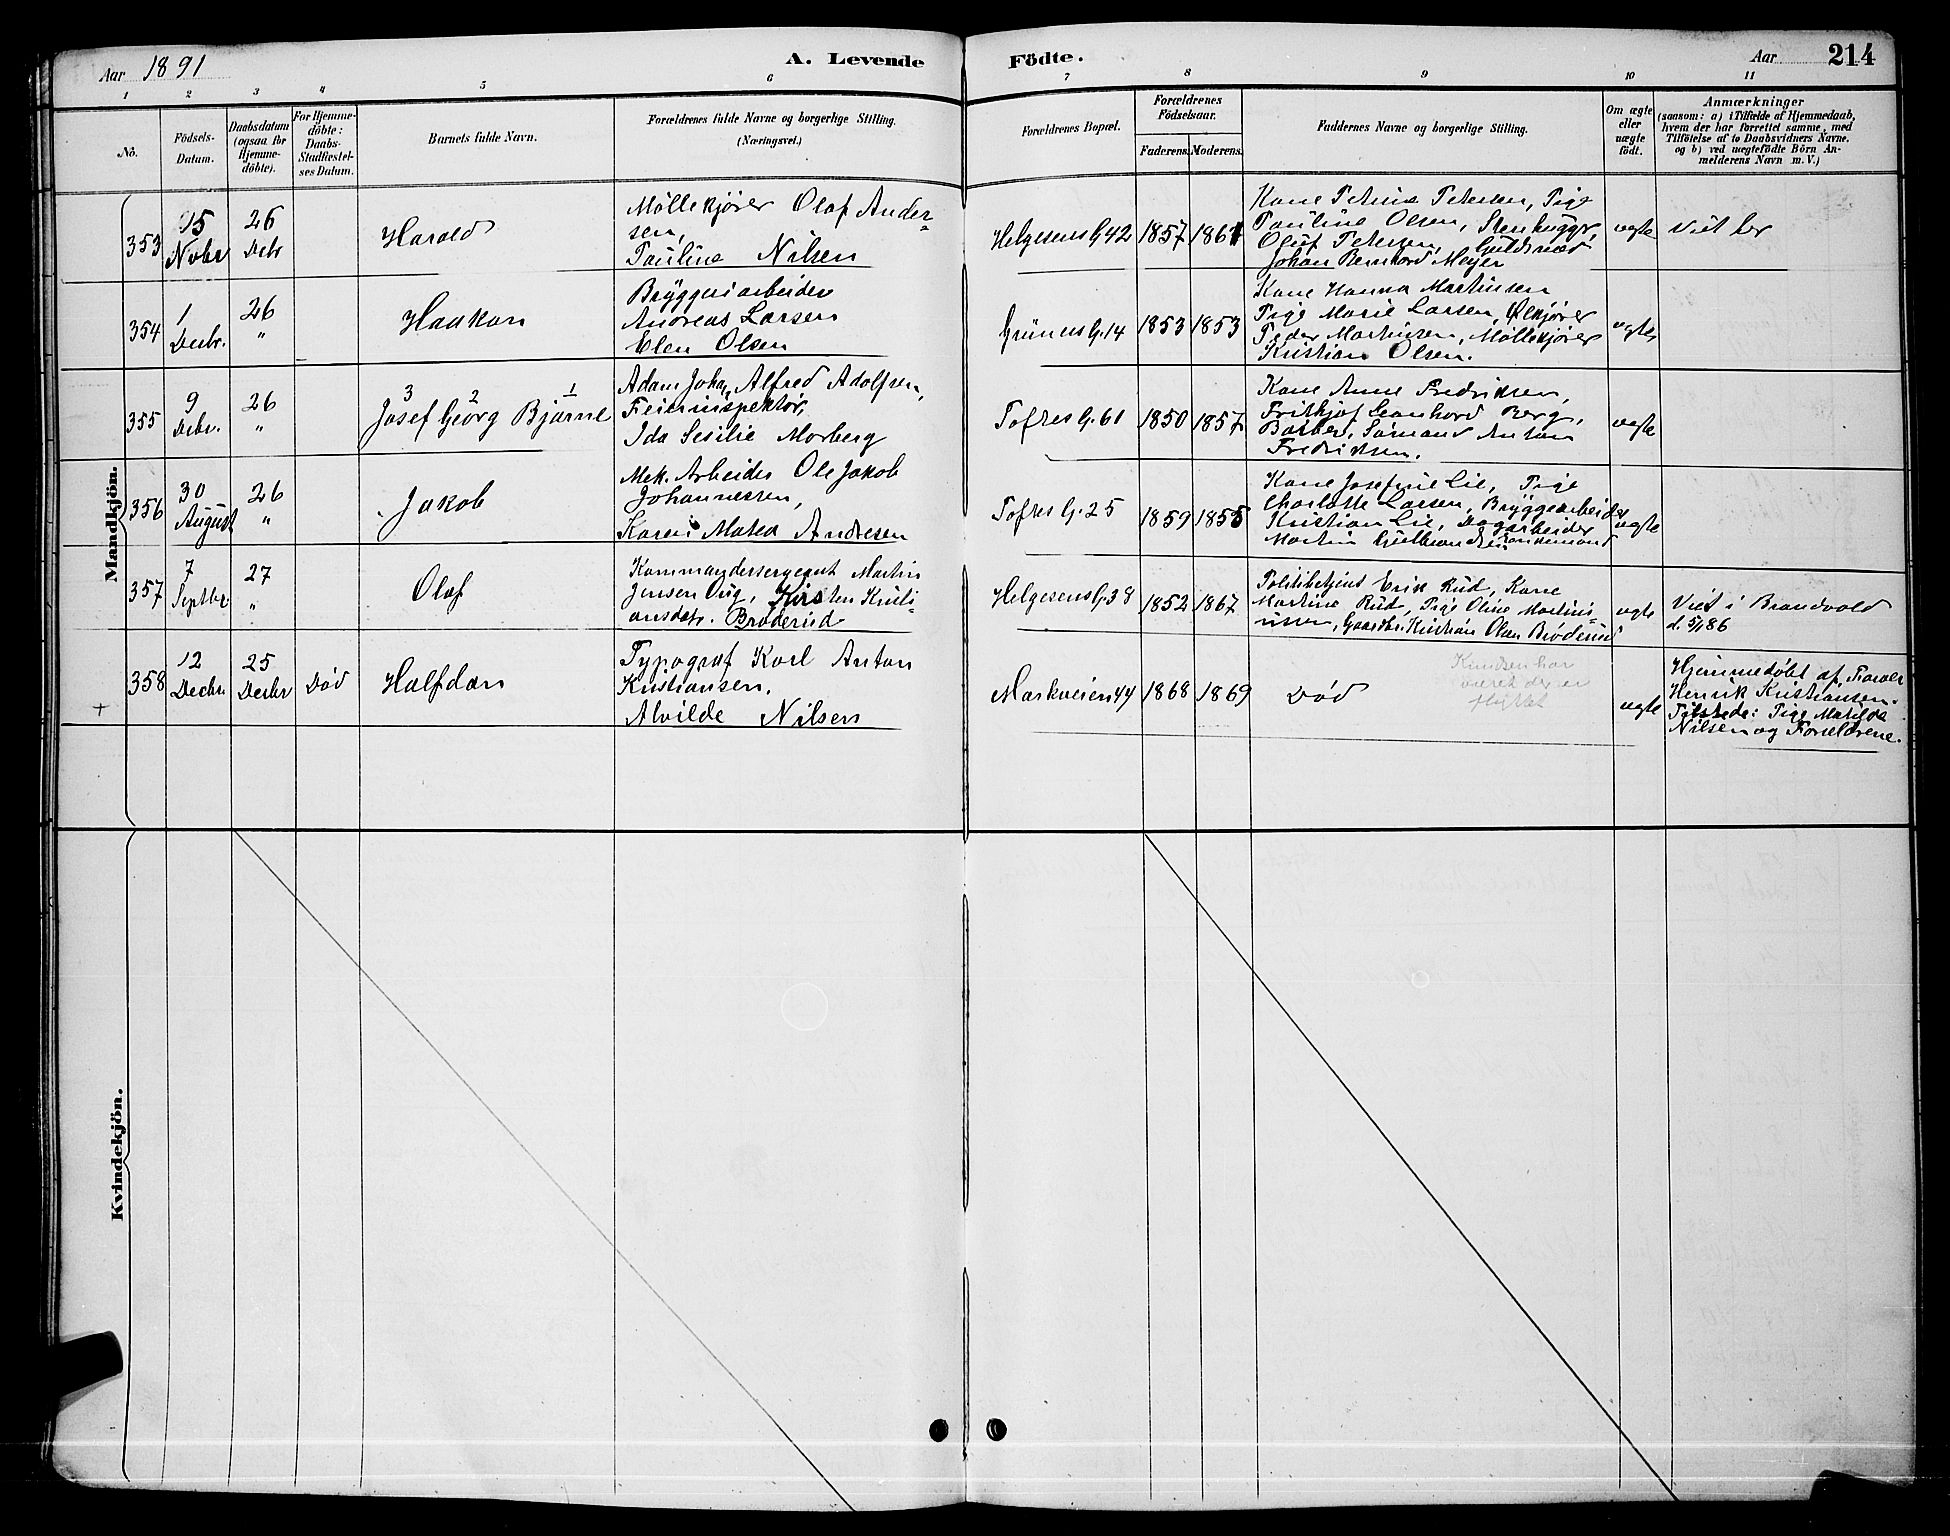 Aar 1891
A. Levende Födte.
Aar
214
1 2 3 4 5 6 7 8 9 10 11
No.
Födsels-
Datum.
Daabsdatum
(ogsaa for
Hjemme-
döbte).
For Hjemme-
döbte:
Daabs-
Stadfæstel-
ses Datum.
Barnets fulde Navn.
Forældrenes fulde Navne og borgerlige Stilling.
(Næringsvei.)
Forældrenes Bopæl.
Forældrenes
Födselsaar.
Faderens. Moderens.
Faddernes Navne og borgerlige Stilling.
Om ægte
eller
uægte
födt.
Anmærkninger
(saasom: a) i Tilfælde af Hjemmedaab,
hvem der har forrettet samme, med
Tilföielse af to Daabsvidners Navne.
og b) ved uægtefödte Börn An-
melderens Navn m. V.)
Mandkjön.
353
15
Novbr
26
Decbr
Harald
Møllekjører Olaf Ander-
sen,
Pauline Nilsen
Helgesens G. 42
1857
1861
Kone Petrine Petersen, Pige
Pauline Olsen, Stenhugger
Oluf Petersen, Guldsmed
Johan Bernhard Meyer
ægte
354
1
Decbr.
26
"
Haakon
Bryggeriarbeider
Andreas Larsen
Elen Olsen
Grüners G. 14
1853
1853
Kone Hanna Martinsen
Pige Marie Larsen, Ølkjører
Peder Martinsen, Møllekjører
Kristian Olsen.
ægte
355
9
Decbr.
26
"
3 2 1
Josef Georg Bjarne
Adam Joha, Alfred Adolfsen,
Feierinspektør,
Ida Sesilie Morberg
Toftes G. 61
1850
1857
Kone Anne Fredriksen,
Frithjof Leonhard Berg,
Barber, Sømand Anton
Fredriksen.
ægte
356
30
August
26
"
Jakob
Mek. Arbeider Ole Jakob
Johannessen,
Karen Matea Andresen
Toftes G. 25
1859
1855
Kone Josefine Lie, Pige
Charlotte Larsen, Bryggearbeider
Kristian Lie, Dagarbeider
Martin
ægte
357
7
Septbr
27
"
Olaf
Kommandersergeant Martin
Jensen Oug, Kirsten Kristi-
ansdatr. Brøderud
Helgesens G. 38
1852
1867
Politibetjent Erik Rud, Kone
Martine Rud, Pige Oline Martins
Gaardbr. Kristian Olsen Brøderud
ægte
Viet i Brandvold
d. 5/1 86
+
358
12
Decbr.
25
Decbr
Død
Halfdan
Typograf Karl Anton
Kristiansen.
Alvilde Nilsen
Markveien 44
1868
1869
Død
Knudsen har
været der er
flyttet
ægte
Hjemmedøbt af Farver
Henrik Kristiansen.
Tilstede: Pige Matilde
Nilsen og Forældrene.
Kvindekjön.